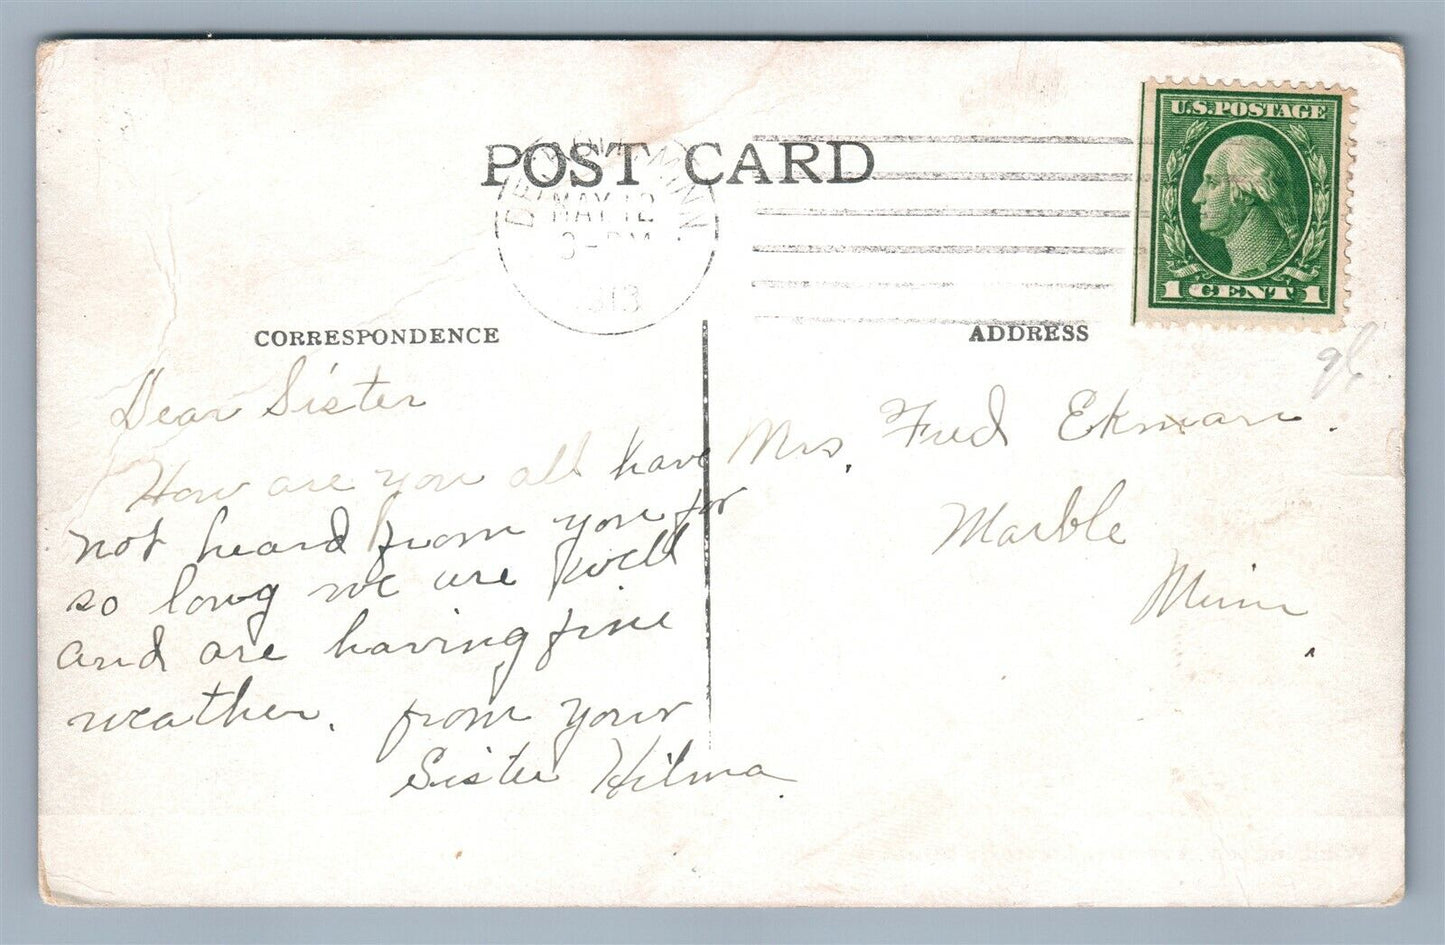 POST CARD
MINN.
MAY 12
U.S. POSTAGE
1 CENT 1
CORRESPONDENCE
Dear Sister
How are you all have
not heard from you for
so long we are well
and are having fine
weather. from your
Sister Hilma.
ADDRESS
Mrs. Fred Ekman.
Marble
Minn.